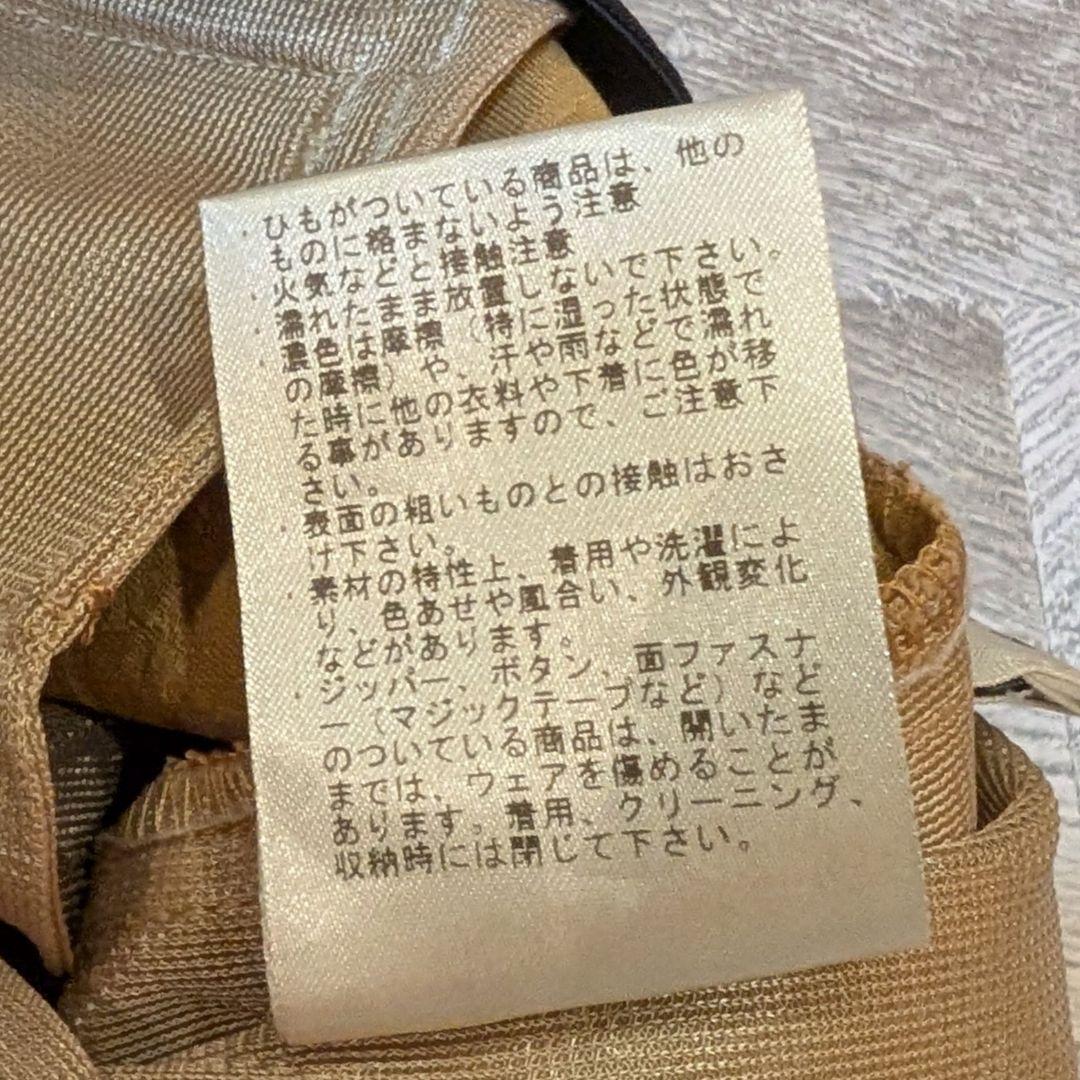 ・ひもがついている商品は、他の
ものに絡まないよう注意
・火気 接触注意
・濡れたまま放置しないで下さい。
・濃色は摩擦(特に湿った状態で
の摩擦)や、汗や雨などで濡れ
た時に他の衣料や下着に色が移
る事がありますので、ご注意下
さい。
・表面の粗いものとの接触はおさ
け下さい。
・素材の特性上、着用や洗濯によ
り、色あせや風合い、外観変化
などがあります。
・ジッパー、ボタン、面ファスナ
ー(マジックテープなど)など
のついている商品は、開いたま
までは、ウェアを傷めることが
あります。着用、クリーニング、
収納時には閉じて下さい。